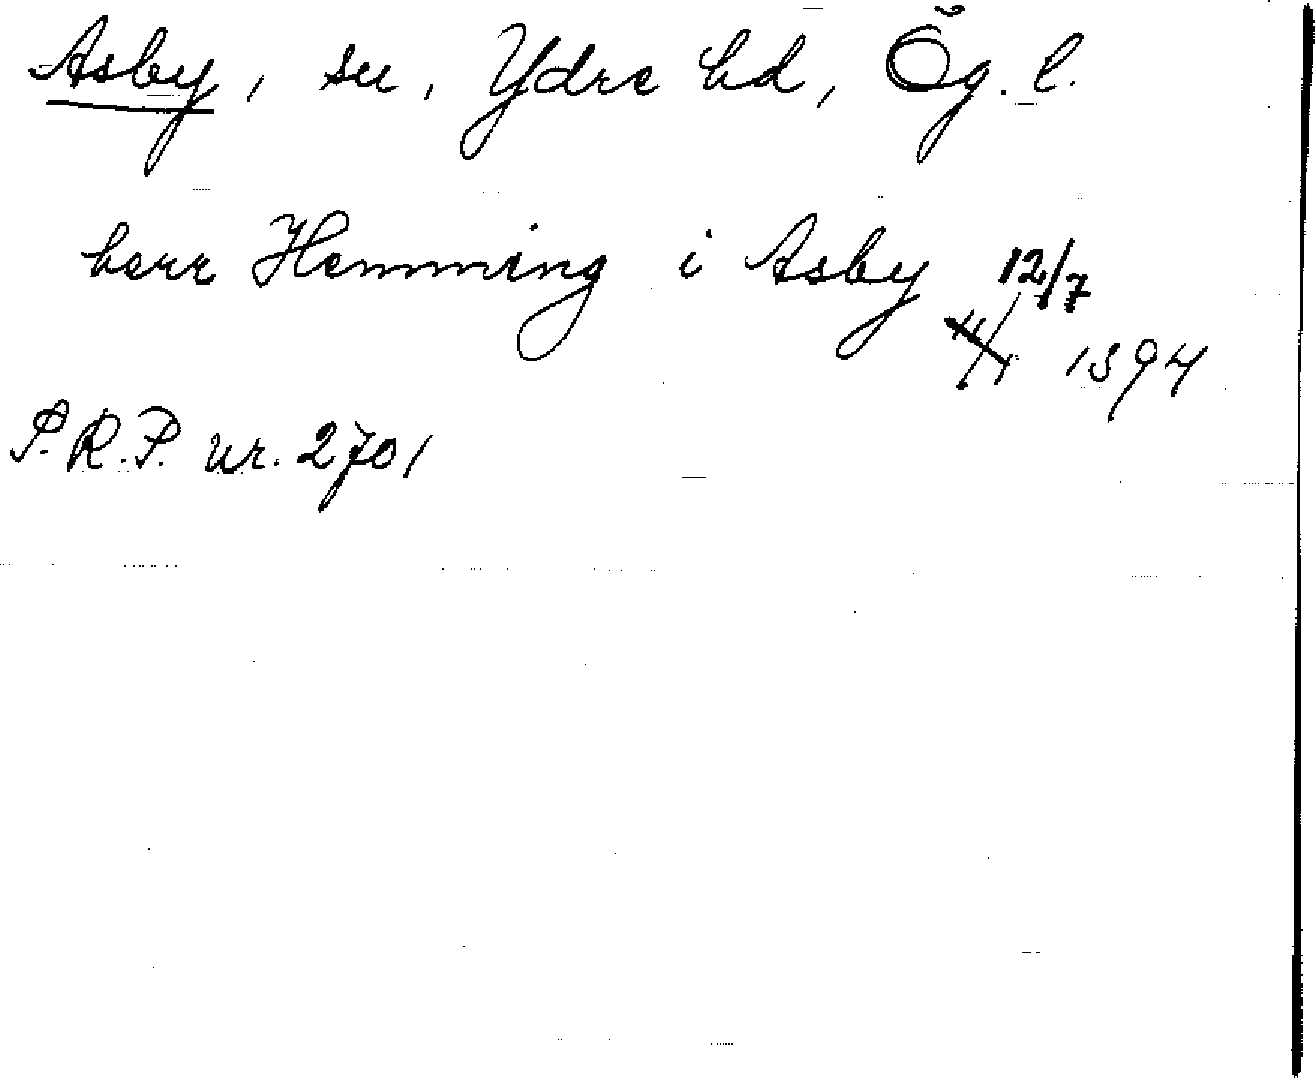 Asby, sn, Ydre hd, Ög. l.
herr Hemming i Asby 12/7
1394
P.R.P. nr. 2701